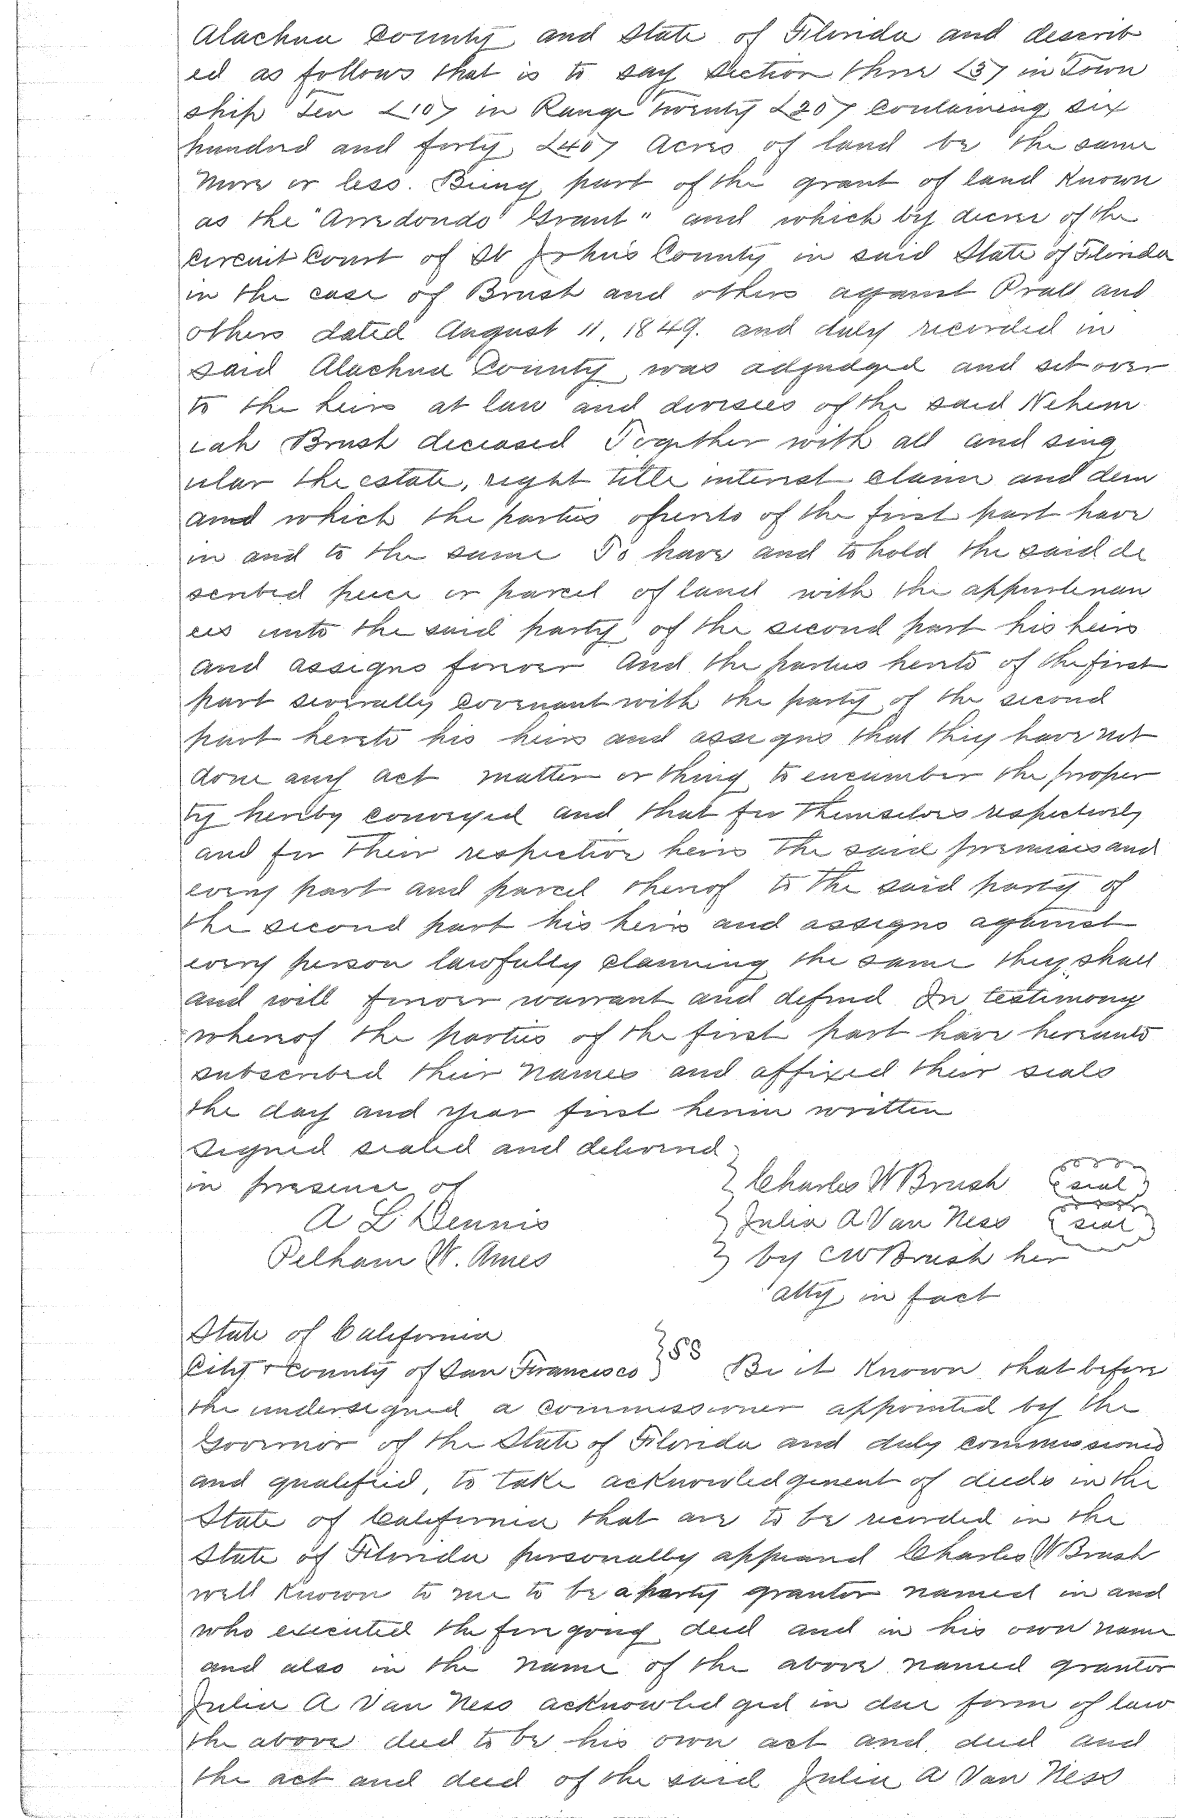 Alachua County and State of Florida and describ
ed as follows that is to say Section three <3> in Town
ship Ten <10> in Range Twenty <20> containing six
hundred and forty <40> Acres of land be the same
more or less. Being part of the grant of land Known
as the "Arredondo Grant" and which by decree of the
Circuit Court of St John's County in said State of Florida
in the case of Brush and others against Prall and
others dated August 11, 1849. and duly recorded in
said Alachua County was adjudged and set over
to the heirs at law and devisees of the said Nehem
iah Brush deceased Together with all and sing
ular the estate, right title interest claim and dem
and which the parties hereto of the first part have
in and to the same To have and to hold the said de
scribed piece or parcel of land with the appurtenan
ces unto the said party of the second part his heirs
and assigns forever And the parties hereto of the first
part severally covenant with the party of the second
part hereto his heirs and assigns that they have not
done any act matter or thing to encumber the proper
ty hereby conveyed and that for themselves respectively
and for their respective heirs the said premises and
every part and parcel thereof to the said party of
the second part his heirs and assigns against
every person lawfully claiming the same they shall
and will forever warrant and defend In testimony
whereof the parties of the first part have hereunto
subscribed their names and affixed their seals
the day and year first herein written
Signed sealed and delivered
in presence of } Charles W Brush (seal)
A L Dennis } Julia A Van Ness (seal)
Pelham W. Ames } by C W Brush her
atty in fact
State of California
City & County of San Francisco } SS Be it Known that before
the undersigned a commissioner appointed by the
Governor of the State of Florida and duly commissioned
and qualified, to take acknowledgement of deeds in the
State of California that are to be recorded in the
State of Florida personally appeared Charles W Brush
well known to me to be a party grantor named in and
who executed the foregoing deed and in his own name
and also in the name of the above named grantor
Julia A Van Ness acknowledged in due form of law
the above deed to be his own act and deed and
the act and deed of the said Julia A Van Ness